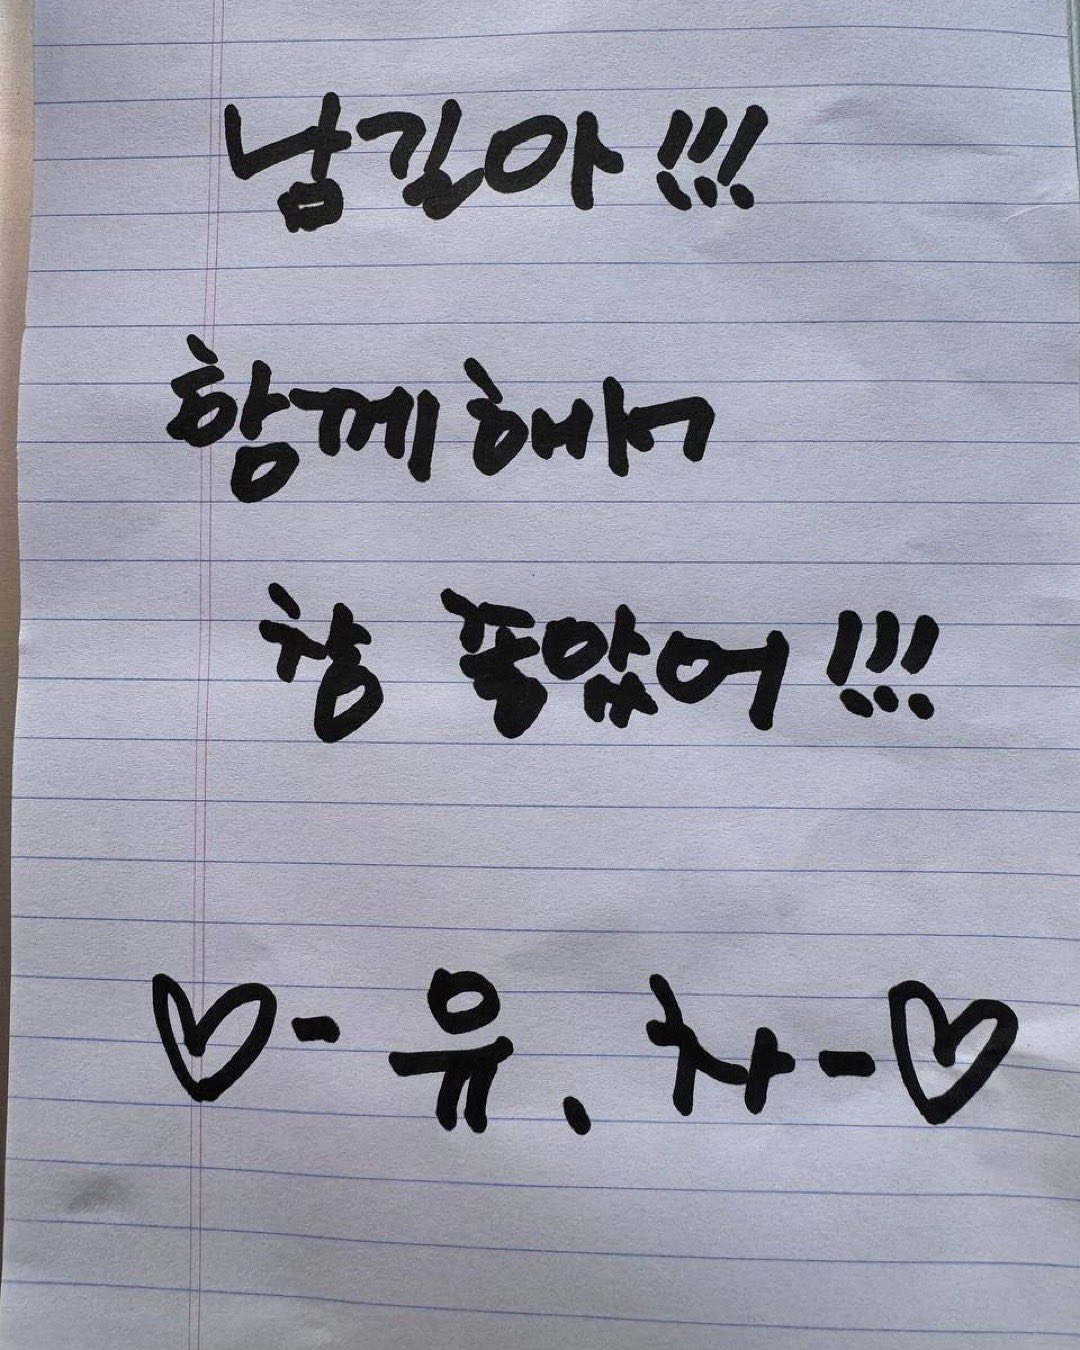 남길아!!!
함께해서
참 좋았어!!!
♡-유、차-♡